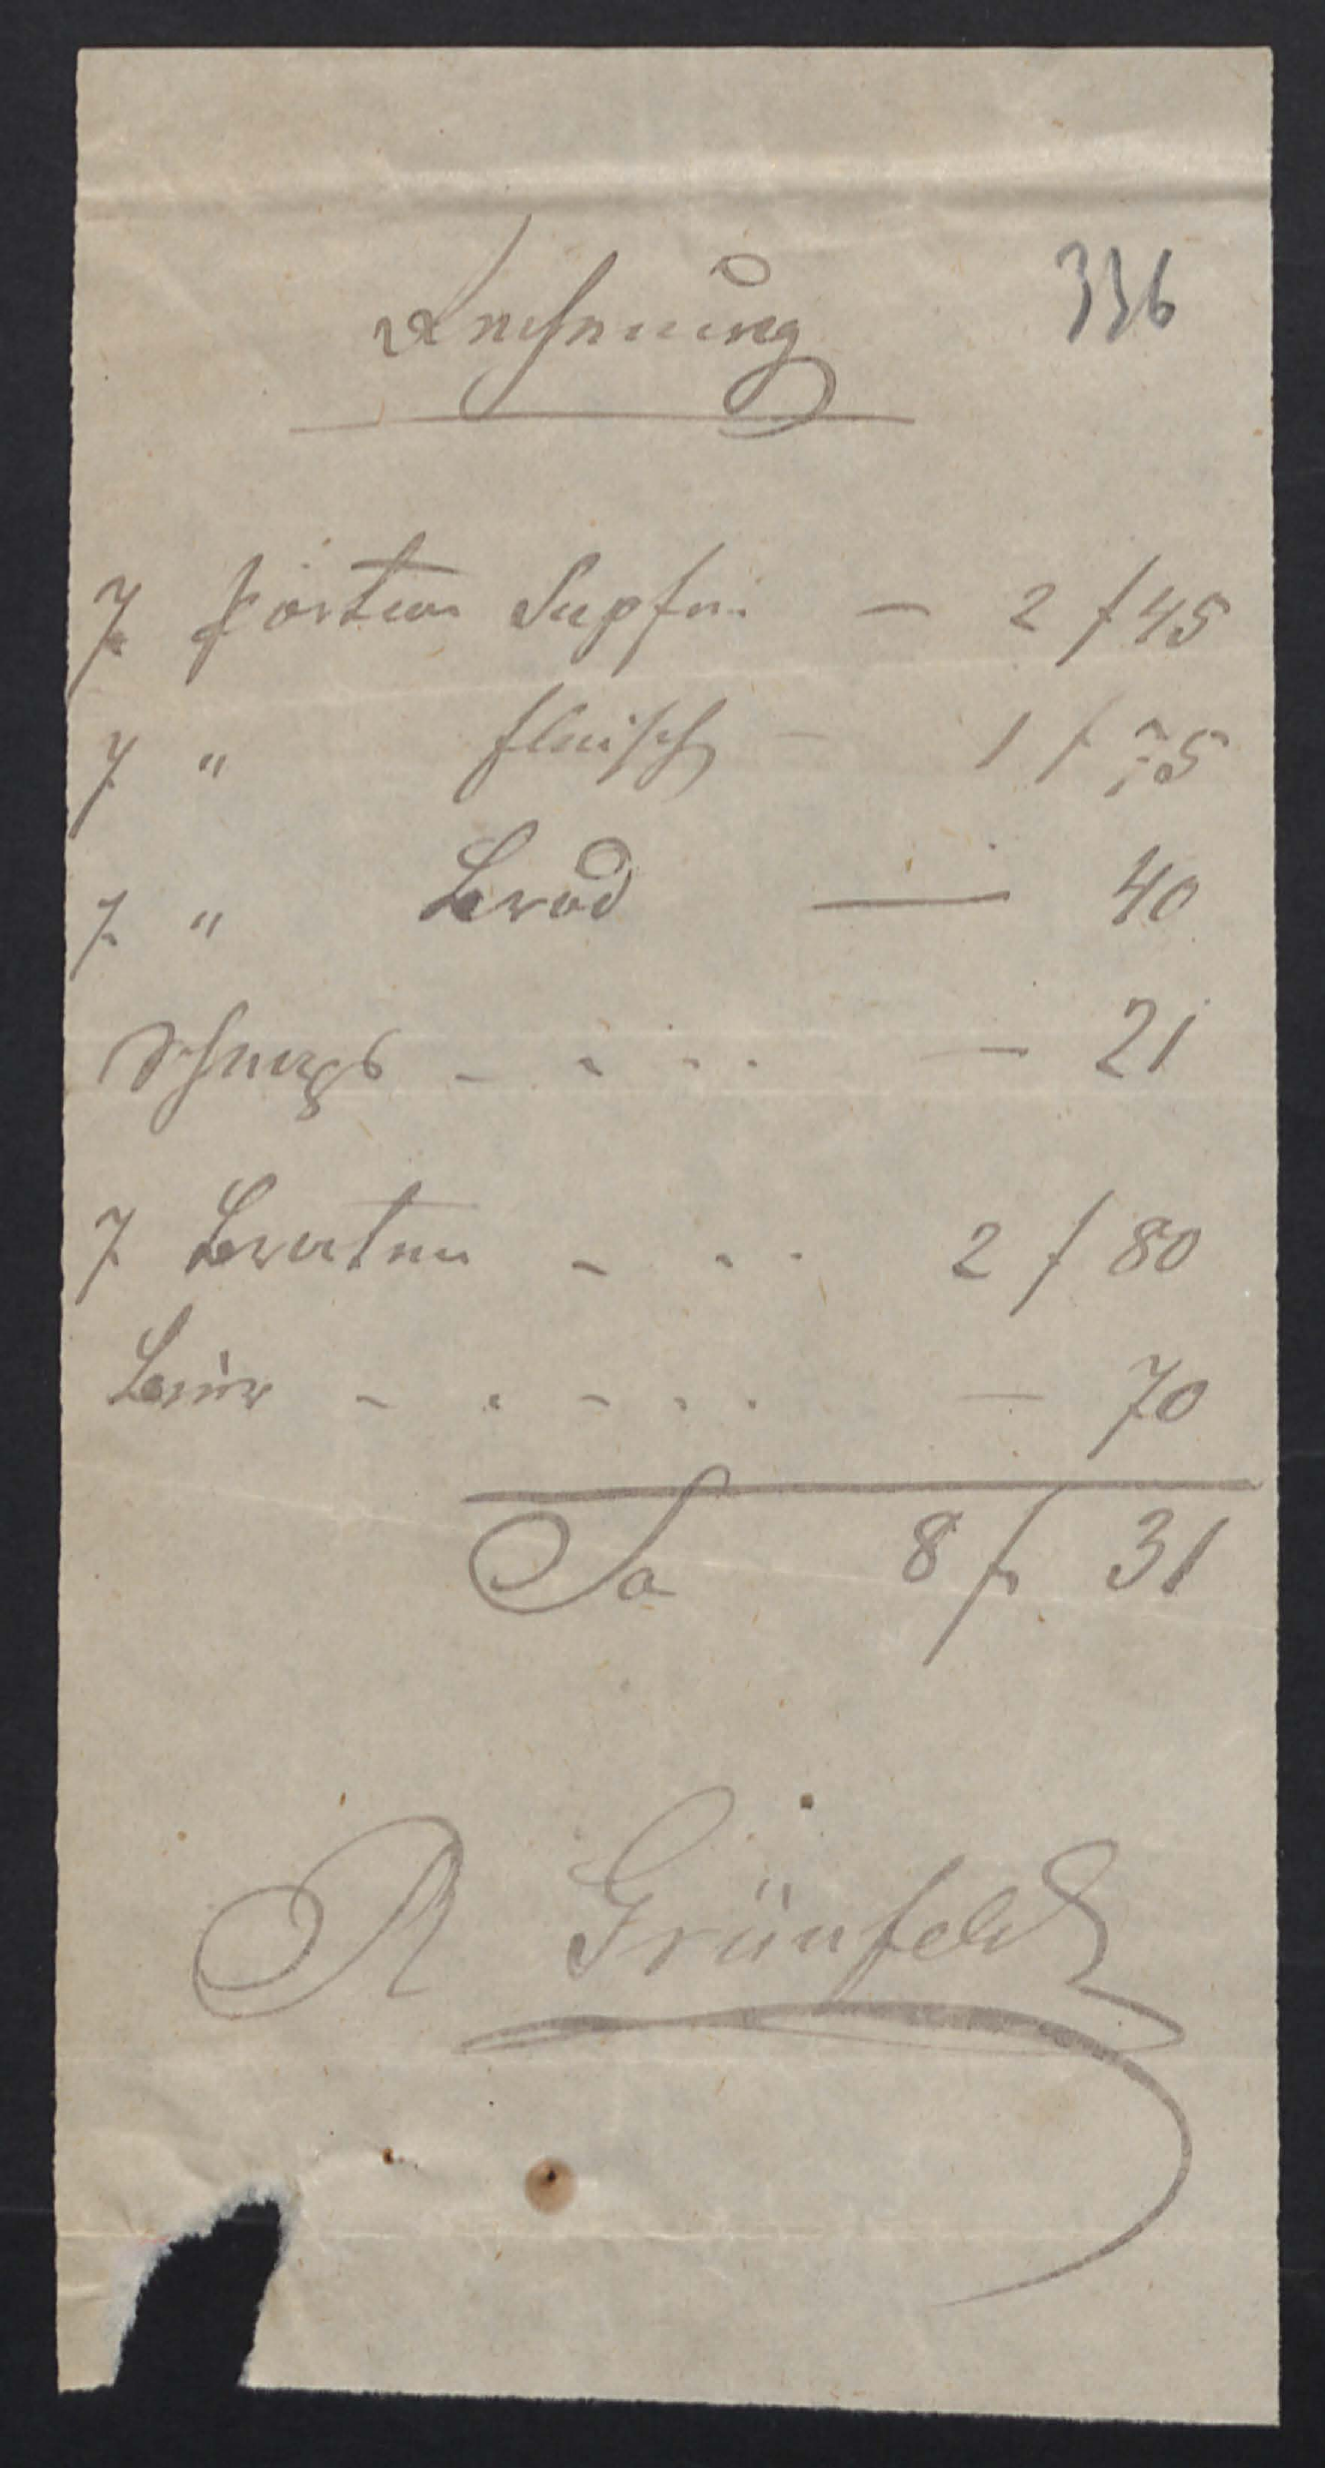 Rechnung 336
7 Portion Supfen — 2 f 45
7 " Fleisch — 1 f 75
7 " Brod — 40
Schnaps - - - - — 21
7 Braten - - - 2 f 80
Bier - - - - - — 70
Sa 8 f 31
R Grünfeld